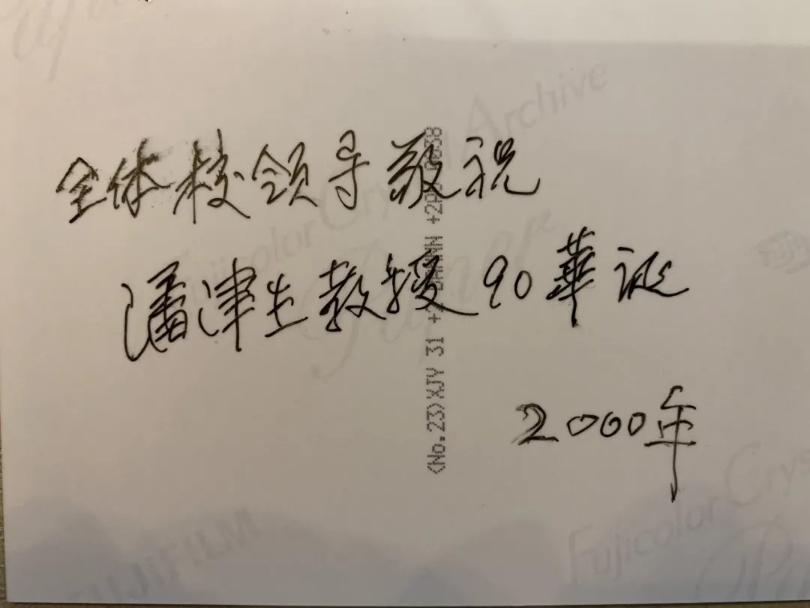 全体校领导敬祝
潘津生教授90華诞
2000年
Fujicolor Crystal Archive
Paper
FUJIFILM
Fujicolor Crys
<No.23>XJY 31